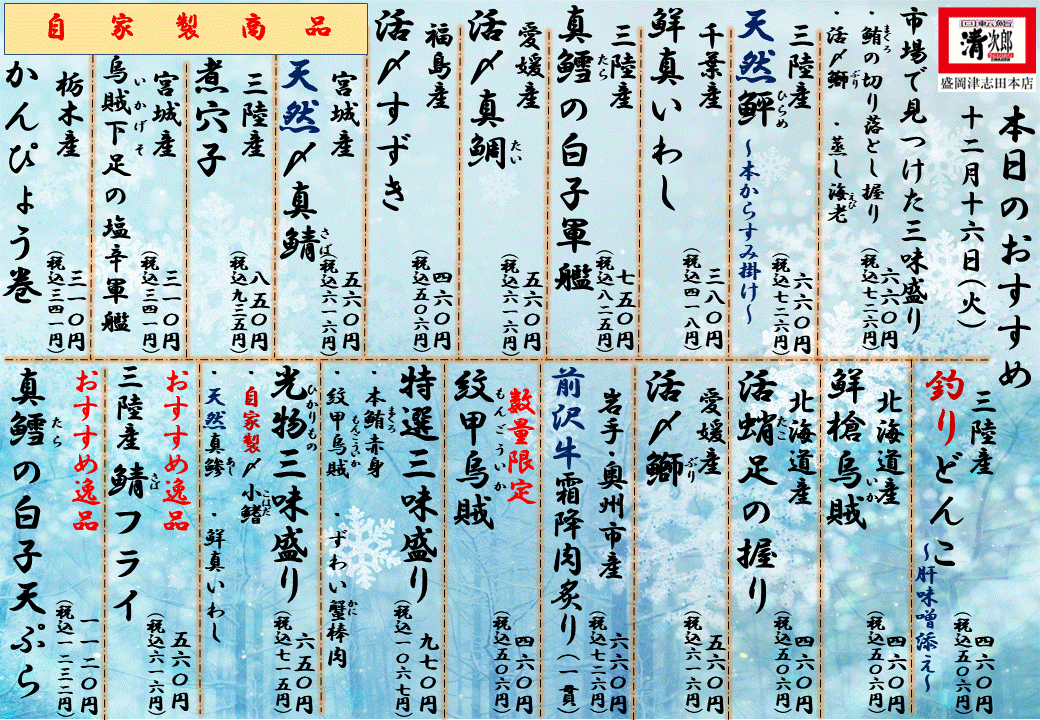 回転鮨
清次郎
盛岡津志田本店
本日のおすすめ
十二月十六日(火)
市場で見つけた三味盛り
・鮪の切り落とし握り
まぐろ
・活〆鰤
ぶり
・蒸し海老
えび
六六〇円
(税込七二六円)
三陸産
天然鮃
ひらめ
~本からすみ掛け~
六六〇円
(税込七二六円)
千葉産
鮮真いわし
三八〇円
(税込四一八円)
三陸産
真鱈の白子軍艦
たら
七五〇円
(税込八二五円)
愛媛産
活〆真鯛
たい
五六〇円
(税込六一六円)
福島産
活〆すずき
四六〇円
(税込五〇六円)
自家製商品
宮城産
天然〆真鯖
さば
五六〇円
(税込六一六円)
三陸産
煮穴子
八五〇円
(税込九三五円)
宮城産
烏賊下足の塩辛軍艦
いかげそ
三一〇円
(税込三四一円)
栃木産
かんぴょう巻
三一〇円
(税込三四一円)
三陸産
釣りどんこ
~肝味噌添え~
四六〇円
(税込五〇六円)
北海道産
鮮槍烏賊
いか
四六〇円
(税込五〇六円)
北海道産
活蛸足の握り
たこ
四六〇円
(税込五〇六円)
愛媛産
活〆鰤
ぶり
五六〇円
(税込六一六円)
岩手・奥州市産
前沢牛霜降肉炙り(一貫)
六六〇円
(税込七二六円)
数量限定
紋甲烏賊
もんごういか
四六〇円
(税込五〇六円)
特選三味盛り
・本鮪赤身
まぐろ
・紋甲烏賊
もんごういか
・ずわい蟹棒肉
かに
九七〇円
(税込一〇六七円)
光物三味盛り
ひかりもの
・自家製〆小鰭
こはだ
・天然真鯵
あじ
・鮮真いわし
六五〇円
(税込七一五円)
おすすめ逸品
三陸産
鯖フライ
さば
五六〇円
(税込六一六円)
おすすめ逸品
真鱈の白子天ぷら
たら
一一二〇円
(税込一二三二円)